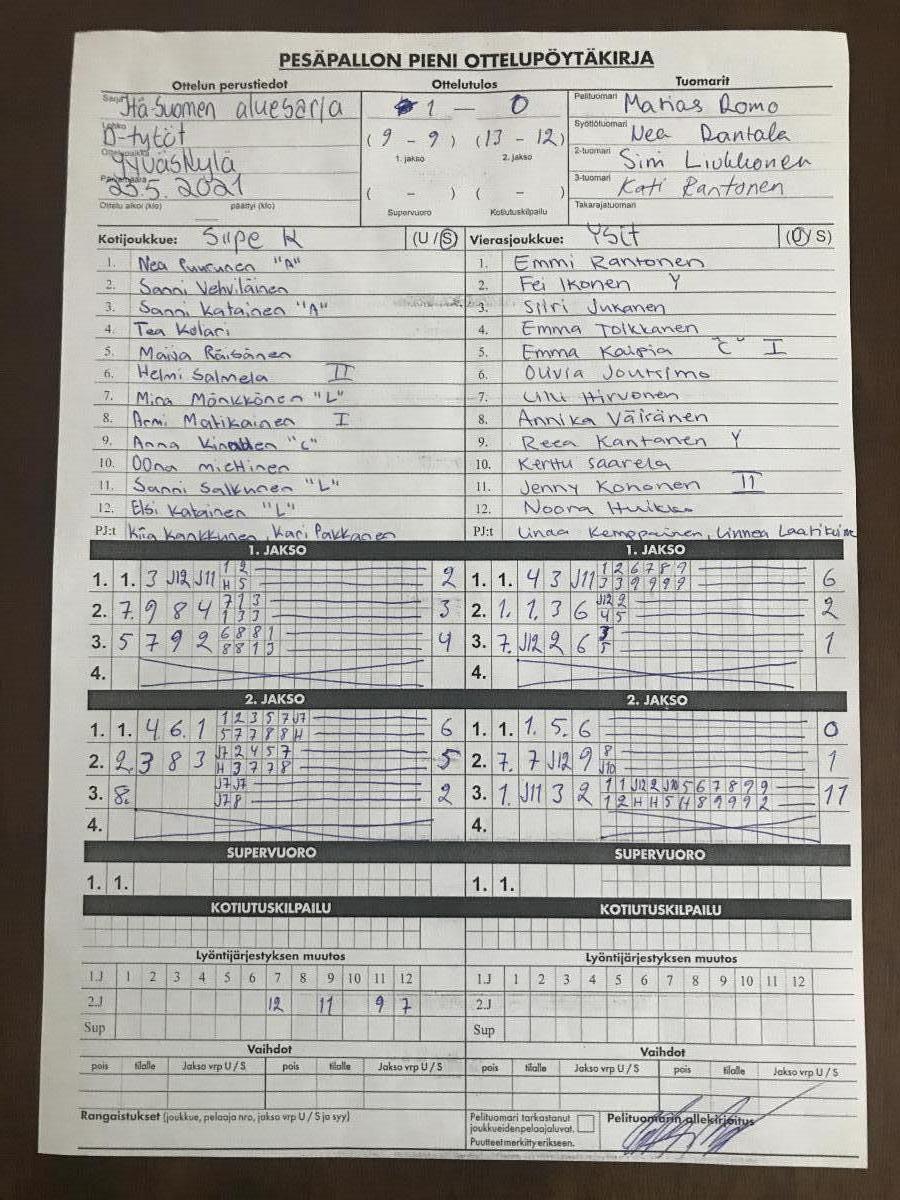 PESÄPALLON PIENI OTTELUPÖYTÄKIRJA
Ottelun perustiedot Ottelutulos Tuomarit
Sarja Itä-Suomen aluesarja 1 — 0 Pelituomari Matias Romo
Lohko D-tytöt (9 - 9) (13 - 12) Syöttötuomari Nea Rantala
Ottelupaikka Jyväskylä 1. jakso 2. jakso 2-tuomari Simi Liukkonen
Päivämäärä 23.5.2021 ( - ) ( - ) 3-tuomari Kati Rantonen
Ottelu alkoi (klo) päättyi (klo) Supervuoro Kotiutuskilpailu Takarajatuomari
Kotijoukkue: Siipe K (U/S) Vierasjoukkue: Ysit (U/S)
1. Nea Puurunen "A" 1. Emmi Rantonen
2. Sanni Vehviläinen 2. Fei Ikonen Y
3. Sanni Katainen "A" 3. Siiri Jukanen
4. Tea Kolari 4. Emma Tolkkanen
5. Maija Räisänen 5. Emma Kaipia "C" I
6. Helmi Salmela II 6. Olivia Joutsimo
7. Mina Mönkkönen "L" 7. Lilli Hirvonen
8. Armi Matikainen I 8. Annika Väisänen
9. Anna "C" 9. Reea Kantanen Y
10. OOna miettinen 10. Kerttu Saarela
11. Sanni Salkunen "L" 11. Jenny Kononen II
12. Elsi Katainen "L" 12. Noora Huikko
PJ:t Kiia Kankkunen, Kari Pakkanen PJ:t Linda Kemppainen, Linnea
1. JAKSO 1. JAKSO
1. 1. 3 J12 J11 1 2 2 1. 1. 4 3 J11 1 2 6 7 8 9 6
H 5 3 3 9 9 9 9
2. 7. 9 8 4 7 1 3 3 2. 1. 1 3 6 J12 2 2
1 3 3 4 5
3. 5 7 9 2 6 8 8 1 4 3. 7. J12 2 6 3 1
8 8 1 3 5
4. 4.
2. JAKSO 2. JAKSO
1. 1. 4. 6. 1 1 2 3 5 7 J7 6 1. 1. 1. 5. 6 0
5 7 7 8 8 H
2. 2. 3 8 3 J7 2 4 5 7 5 2. 7. 7 J12 9 8 1
H 3 7 7 8 J10
3. 8. J7 J7 2 3. 1. J11 3 2 1 1 J12 2 J10 5 6 7 8 9 9 11
J7 8 1 2 H H 5 H 8 9 9 9 2
4. 4.
SUPERVUORO SUPERVUORO
1. 1. 1. 1.
KOTIUTUSKILPAILU KOTIUTUSKILPAILU
Lyöntijärjestyksen muutos Lyöntijärjestyksen muutos
1.J 1 2 3 4 5 6 7 8 9 10 11 12 1.J 1 2 3 4 5 6 7 8 9 10 11 12
2.J 12 11 9 7 2.J
Sup Sup
Vaihdot Vaihdot
pois tilalle Jakso vrp U / S pois tilalle Jakso vrp U / S pois tilalle Jakso vrp U / S pois tilalle Jakso vrp U / S
Rangaistukset (joukkue, pelaaja nro, jakso vrp U / S ja syy) Pelituomari tarkastanut Pelituomarin allekirjoitus
joukkueidenpelaajaluvat.
Puutteetmerkittyerikseen.